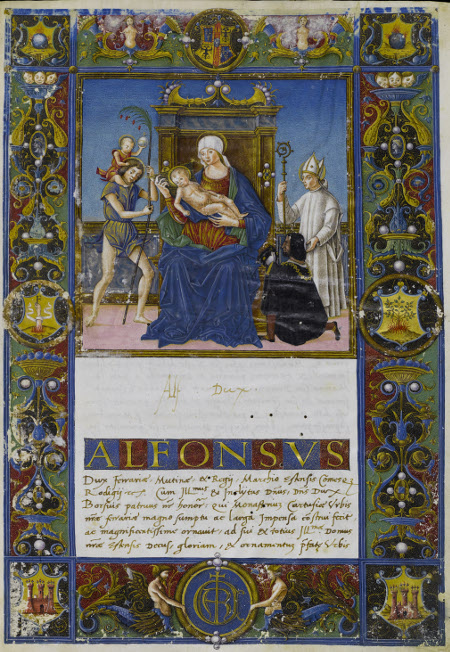 Alf Dux.
ALFONSVS
Dux ferrariæ Mutinæ et Regij. Marchio Estensis Comes
Rodigij Cum Ill.mus et Inclytus Dñus Dñs Dux
Borsius patruus nr honor. qui Monasteriū Cartusiæ Vrbis
nræ ferrariæ magno sumptu ac larga Impensa cōstrui fecit
ac magnificentissime ornauit ad sui et totius Ill.mæ Domus
nræ Estensis Decus gloriam, et ornamentum Vrbis